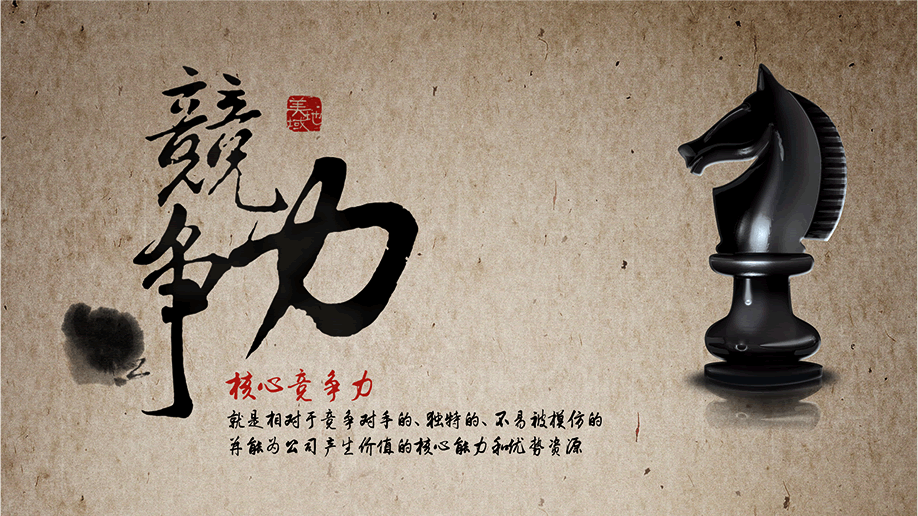 競争力
美域
地
核心竞争力
就是相对于竞争对手的、独特的、不易被模仿的
并能为公司产生价值的核心能力和优势资源